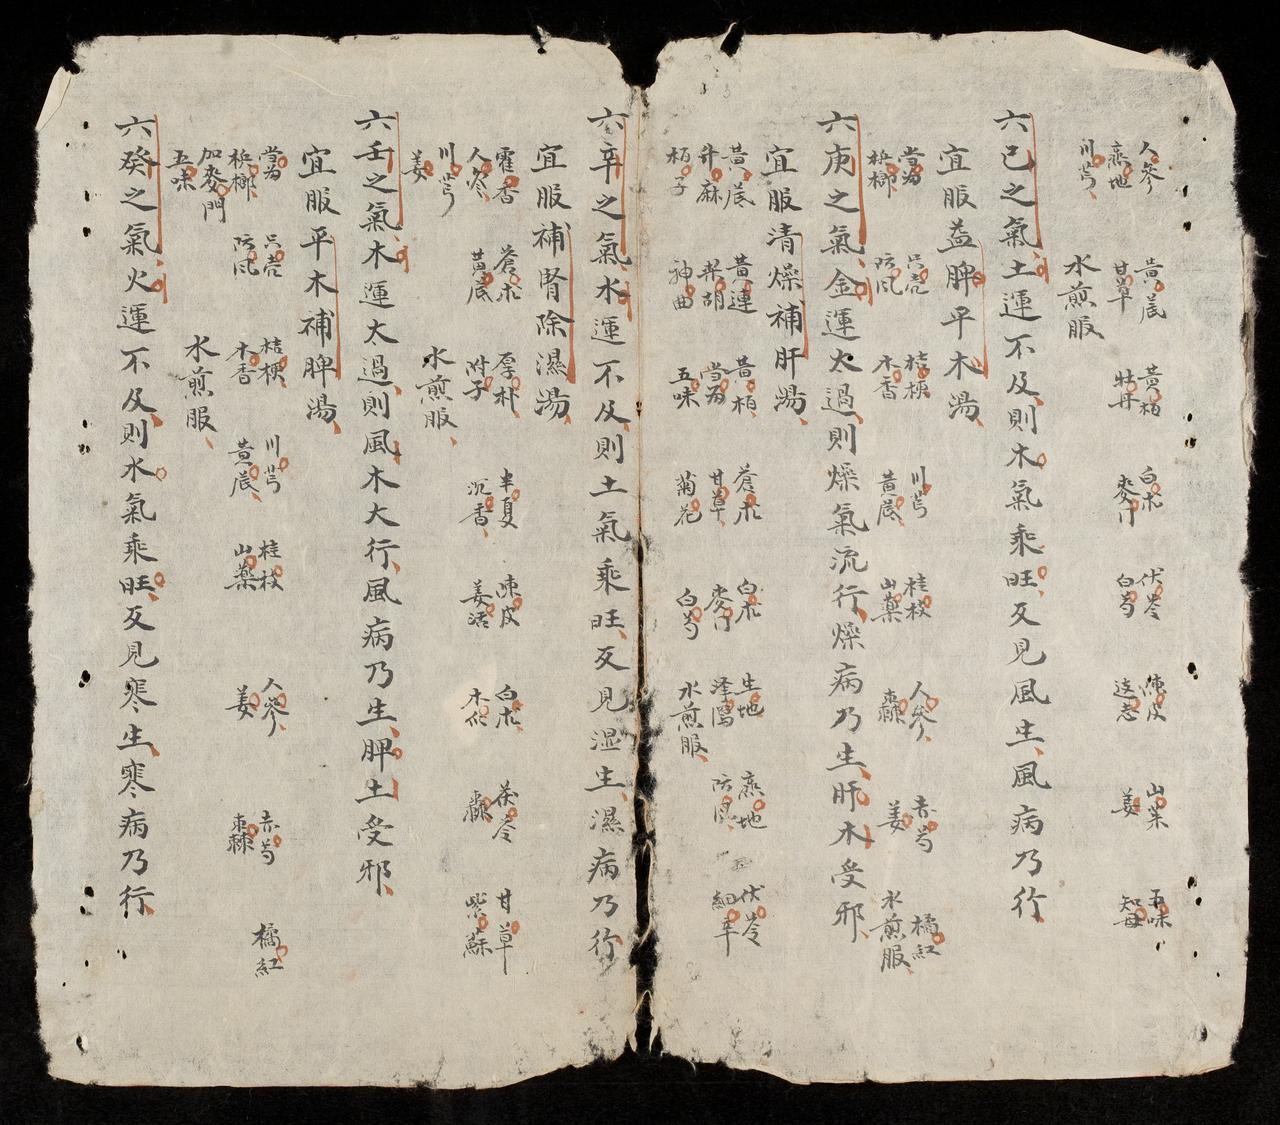 人參 黃芪 黃柏 白朮 伏苓 陳皮 山藥 五味
熟地 甘草 牡丹 麥門 白芍 远志 姜 知母
川芎
水煎服
六己之氣土運不及則木氣乘旺反見風生風病乃行
宜服益脾平木湯
當歸 只壳 桔梗 川芎 桂枝 人參 赤芍 橘紅
梹榔 防风 木香 黃芪 山藥 棗 姜 水煎服
六庚之氣金運太過則燥氣流行燥病乃生肝木受邪
宜服清燥補肝湯
黃芪 黃連 黃柏 蒼朮 白朮 生地 熟地 伏苓
升麻 柴胡 當歸 甘草 麥門 澤瀉 防风 細辛
栢子 神曲 五味 菊花 白芍 水煎服
六辛之氣水運不及則土氣乘旺反見湿生濕病乃行
宜服補腎除濕湯
霍香 蒼朮 厚朴 半夏 陳皮 白朮 茯苓 甘草
人参 黃芪 附子 沉香 姜活 木瓜 棗 紫蘇
川芎
姜
水煎服
六壬之氣木運太過則風木大行風病乃生脾土受邪
宜服平木補脾湯
當歸 只壳 桔梗 川芎 桂枝 人參 赤芍 橘紅
梹榔 防风 木香 黃芪 山藥 姜 棗
加麥門
五味
水煎服
六癸之氣火運不及則水氣乘旺反見寒生寒病乃行